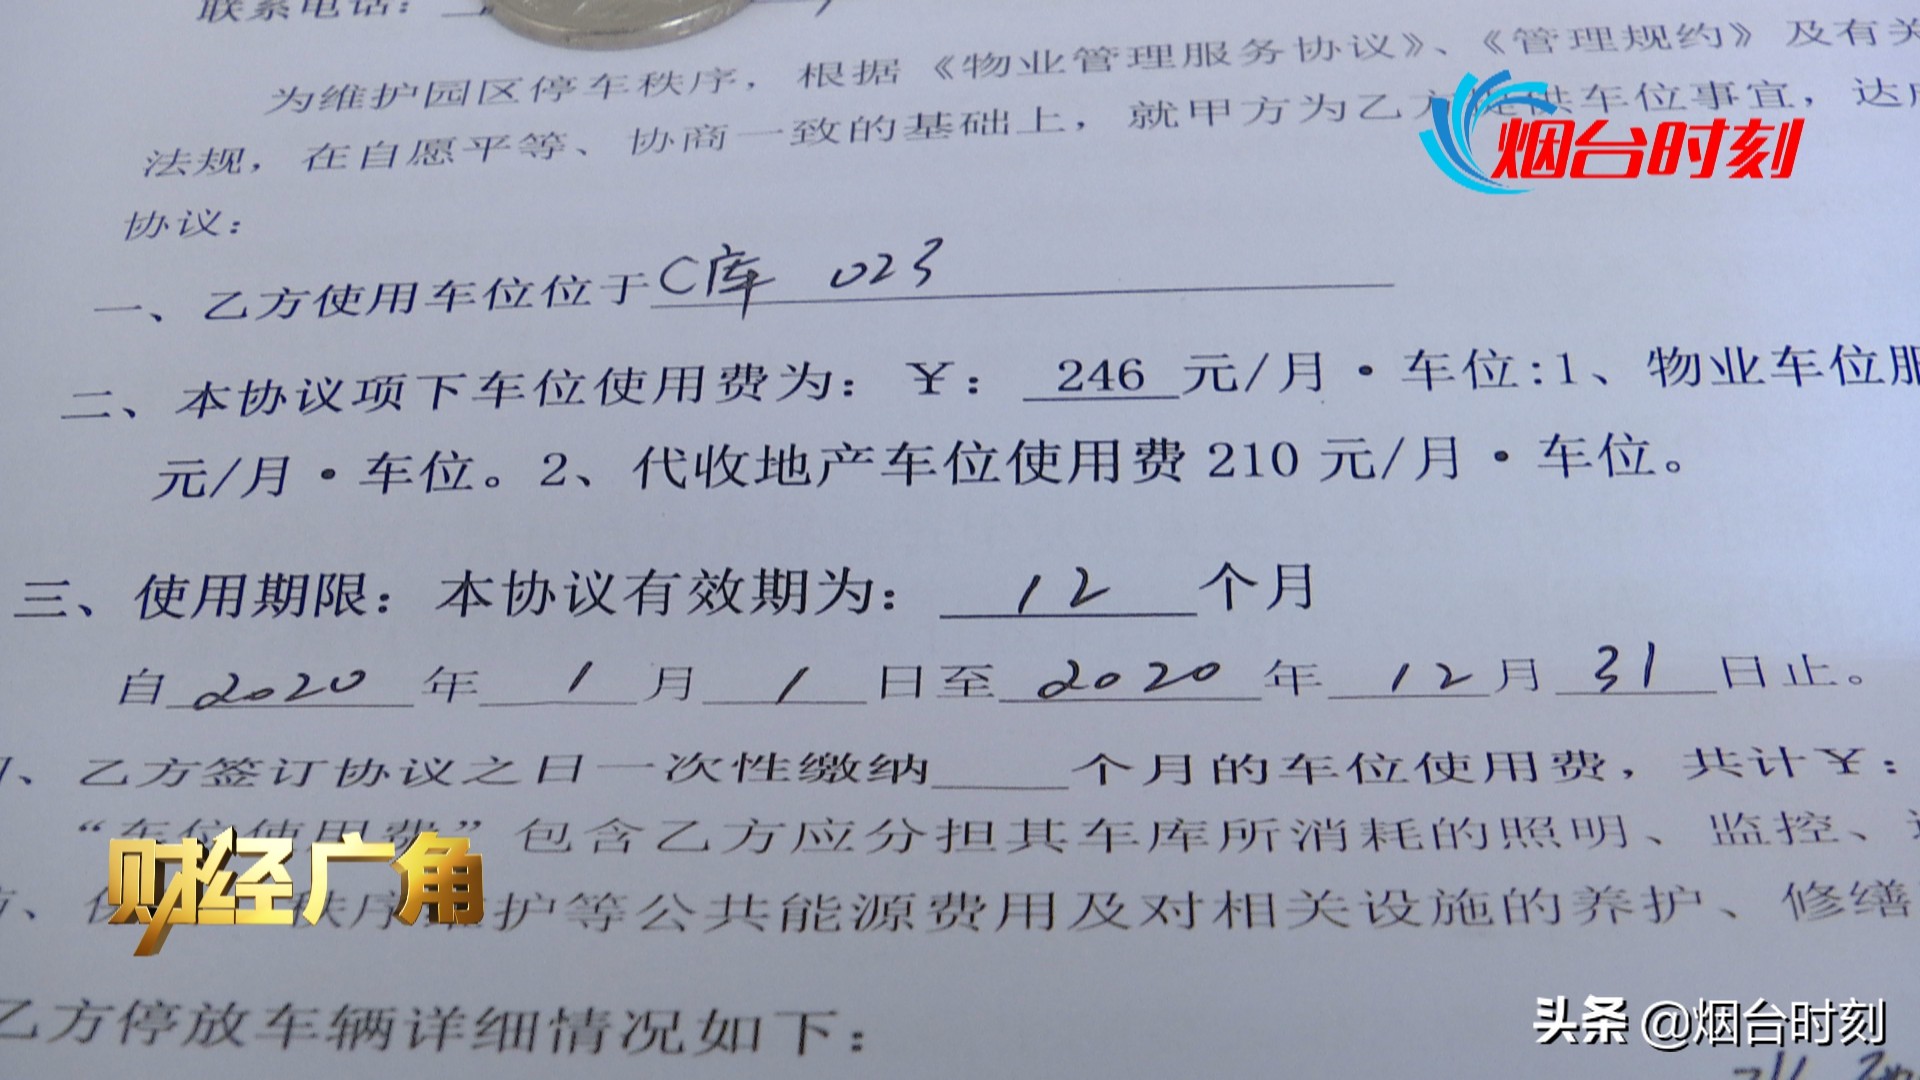 联系电话：
为维护园区停车秩序，根据《物业管理服务协议》、《管理规约》及有关
法规，在自愿平等、协商一致的基础上，就甲方为乙方提供车位事宜，达
协议：
烟台时刻
一、乙方使用车位位于C库 023
二、本协议项下车位使用费为：￥：246元/月·车位:1、物业车位服
元/月·车位。2、代收地产车位使用费210元/月·车位。
三、使用期限：本协议有效期为：12个月
自2020年1月1日至2020年12月31日止。
、乙方签订协议之日一次性缴纳____个月的车位使用费，共计￥：
“车位使用费”包含乙方应分担其车库所消耗的照明、监控、
、秩序维护等公共能源费用及对相关设施的养护、修缮
财经广角
乙方停放车辆详细情况如下：
头条 @烟台时刻